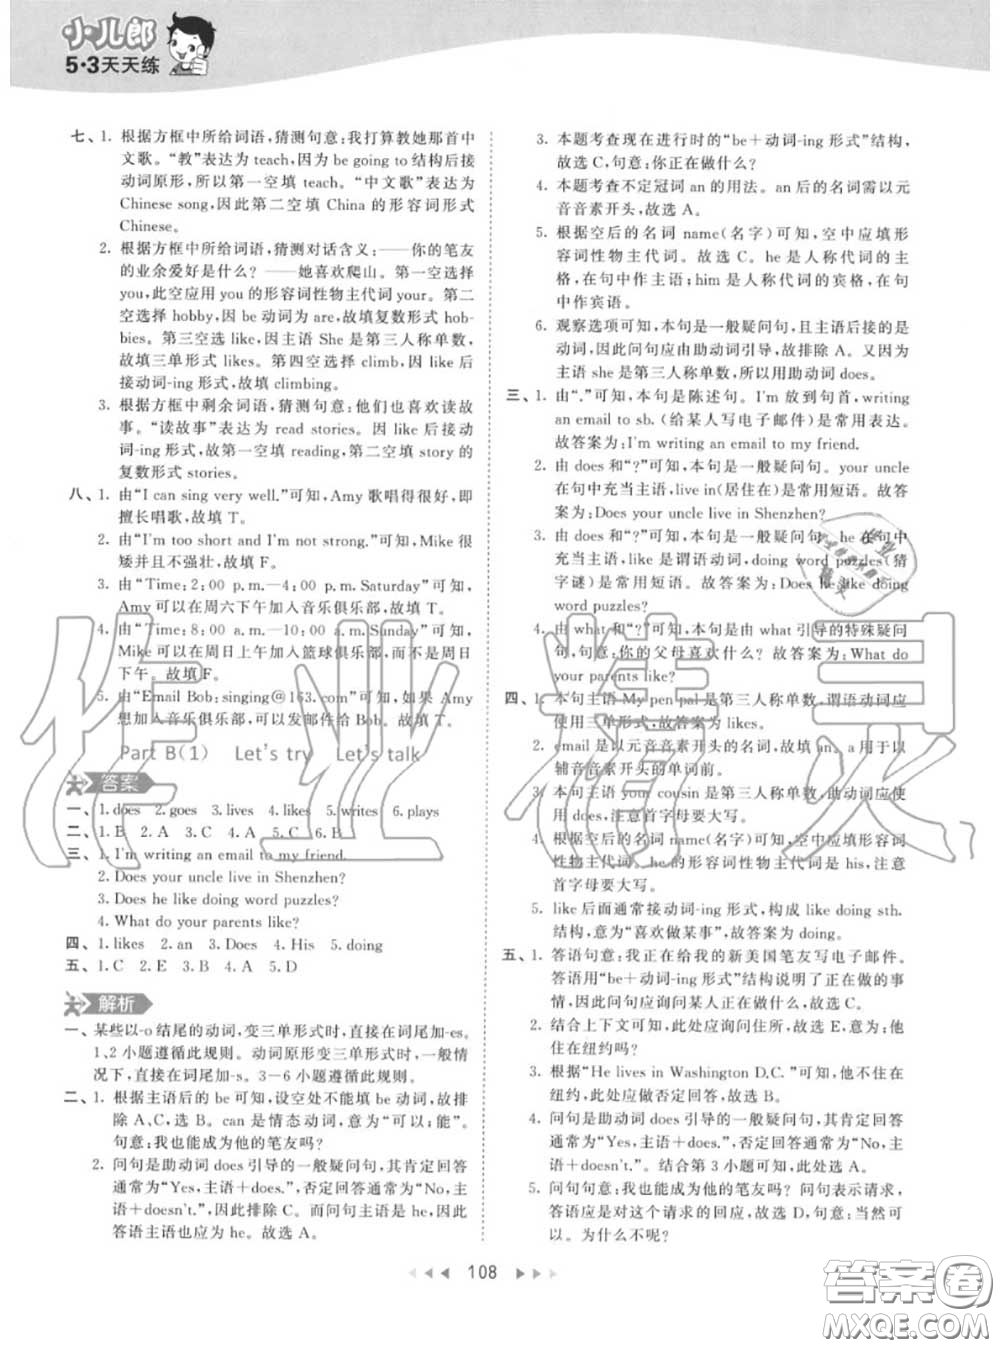 小儿郎
5·3天天练
七、1. 根据方框中所给词语,猜测句意:我打算教她那首中
文歌。“教”表达为 teach,因为 be going to 结构后接
动词原形,所以第一空填 teach。“中文歌”表达为
Chinese song,因此第二空填 China 的形容词形式
Chinese。
2. 根据方框中所给词语,猜测对话含义:——你的笔友
的业余爱好是什么? ——她喜欢爬山。第一空选择
you,此空应用 you 的形容词性物主代词 your。第二
空选择 hobby,因 be 动词为 are,故填复数形式 hob-
bies。第三空选 likes,因主语 She 是第三人称单数,
故填三单形式 likes。第四空选择 climb,因 like 后
接动词-ing 形式,故填 climbing。
3. 根据方框中剩余词语,猜测句意:他们也喜欢读故
事。“读故事”表达为 read stories。因 like 后接动
词-ing 形式,故第一空填 reading,第二空填 story 的
复数形式 stories。
八、1. 由“I can sing very well.”可知,Amy 歌唱得很好,即
擅长唱歌,故填 T。
2. 由“I'm too short and I'm not strong.”可知,Mike 很
矮并且不强壮,故填 F。
3. 由“Time:2:00 p.m.—4:00 p.m. Saturday”可知,
Amy 可以在周六下午加入音乐俱乐部,故填 T。
4. 由“Time:8:00 a.m.—10:00 a.m. Sunday”可知,
Mike 可以在周日上午加入篮球俱乐部,而不是周日
下午。故填 F。
5. 由“Email Bob:singing@163.com”可知,如果 Amy
想加入音乐俱乐部,可以发邮件给 Bob。故填 T。
Part B(1) Let's try Let's talk
答案
一、1. does 2. goes 3. lives 4. likes 5. writes 6. plays
二、1. B 2. A 3. C 4. A 5. C 6. B
三、1. I'm writing an email to my friend.
2. Does your uncle live in Shenzhen?
3. Does he like doing word puzzles?
4. What do your parents like?
四、1. likes 2. an 3. Does 4. His 5. doing
五、1. C 2. E 3. B 4. A 5. D
解析
一、某些以-o 结尾的动词,变三单形式时,直接在词尾加-es。
1、2 小题遵循此规则。动词原形变三单形式时,一般情
况下,直接在词尾加-s。3—6 小题遵循此规则。
二、1. 根据主语后的 be 可知,设空处不能填 be 动词,故排
除 A、C,选 B。can 是情态动词,意为“可以;能”。
句意:我也能成为他的笔友吗?
2. 问句是助动词 does 引导的一般疑问句,其肯定回答
通常为“Yes,主语+does.”,否定回答通常为“No,
主语+doesn't.”,因此排除 C。而问句主语是 he,因此
答语主语也应为 he。故选 A。
3. 本题考查现在进行时的“be+动词-ing 形式”结构,
故选 C,句意:你正在做什么?
4. 本题考查不定冠词 an 的用法。an 后的名词需以元
音音素开头,故选 A。
5. 根据空后的名词 name(名字)可知,空中应填形容
词性物主代词。故选 C。he 是人称代词的主
格,在句中作主语;him 是人称代词的宾格,在句
中作宾语。
6. 观察选项可知,本句是一般疑问句,且主语后接的是
动词,因此问句应由助动词引导,故排除 A。又因为
主语 she 是第三人称单数,所以用助动词 does。
三、1. 由“.”可知,本句是陈述句。I'm 放到句首,writing
an email to sb.(给某人写电子邮件)是常用表达。
故答案为:I'm writing an email to my friend.
2. 由 does 和“?”可知,本句是一般疑问句。your uncle
在句中充当主语,live in(居住在)是常用短语。故答
案为:Does your uncle live in Shenzhen?
3. 由 does 和“?”可知,本句是一般疑问句。he 在句中
充当主语,like 是谓语动词,doing word puzzles(猜
字谜)是常用短语。故答案为:Does he like doing
word puzzles?
4. 由 what 和“?”可知,本句是由 what 引导的特殊疑问
句,句意:你的父母喜欢什么? 故答案为:What do
your parents like?
四、1. 本句主语 My pen pal 是第三人称单数,谓语动词应
使用三单形式,故答案为 likes。
2. email 是以元音音素开头的名词,故填 an。a 用于以
辅音音素开头的单词前。
3. 本句主语 your cousin 是第三人称单数,助动词应使
用 does,注意首字母要大写。
4. 根据空后的名词 name(名字)可知,空中应填形容词
性物主代词。he 的形容词性物主代词是 his,注意
首字母要大写。
5. like 后面通常接动词-ing 形式,构成 like doing sth.
结构,意为“喜欢做某事”,故答案为 doing。
五、1. 答语句意:我正在给我的新美国笔友写电子邮件。
答语用“be+动词-ing 形式”结构说明了正在做的事
情,因此问句应询问某人正在做什么,故选 C。
2. 结合上下文可知,此处应询问住所,故选 E,意为:他
住在纽约吗?
3. 根据“He lives in Washington D.C.”可知,他不住在纽
约,此处应做否定回答,故选 B。
4. 问句是助动词 does 引导的一般疑问句,其肯定回答
通常为“Yes,主语+does.”,否定回答通常为“No,主
语+doesn't.”。结合第 3 小题可知,此处选 A。
5. 问句句意:我也能成为他的笔友吗? 问句表示请求,
答语应是对这个请求的回应,故选 D,句意:当然可
以。为什么不呢?
108
作业精灵
答案卷
MXQE.COM